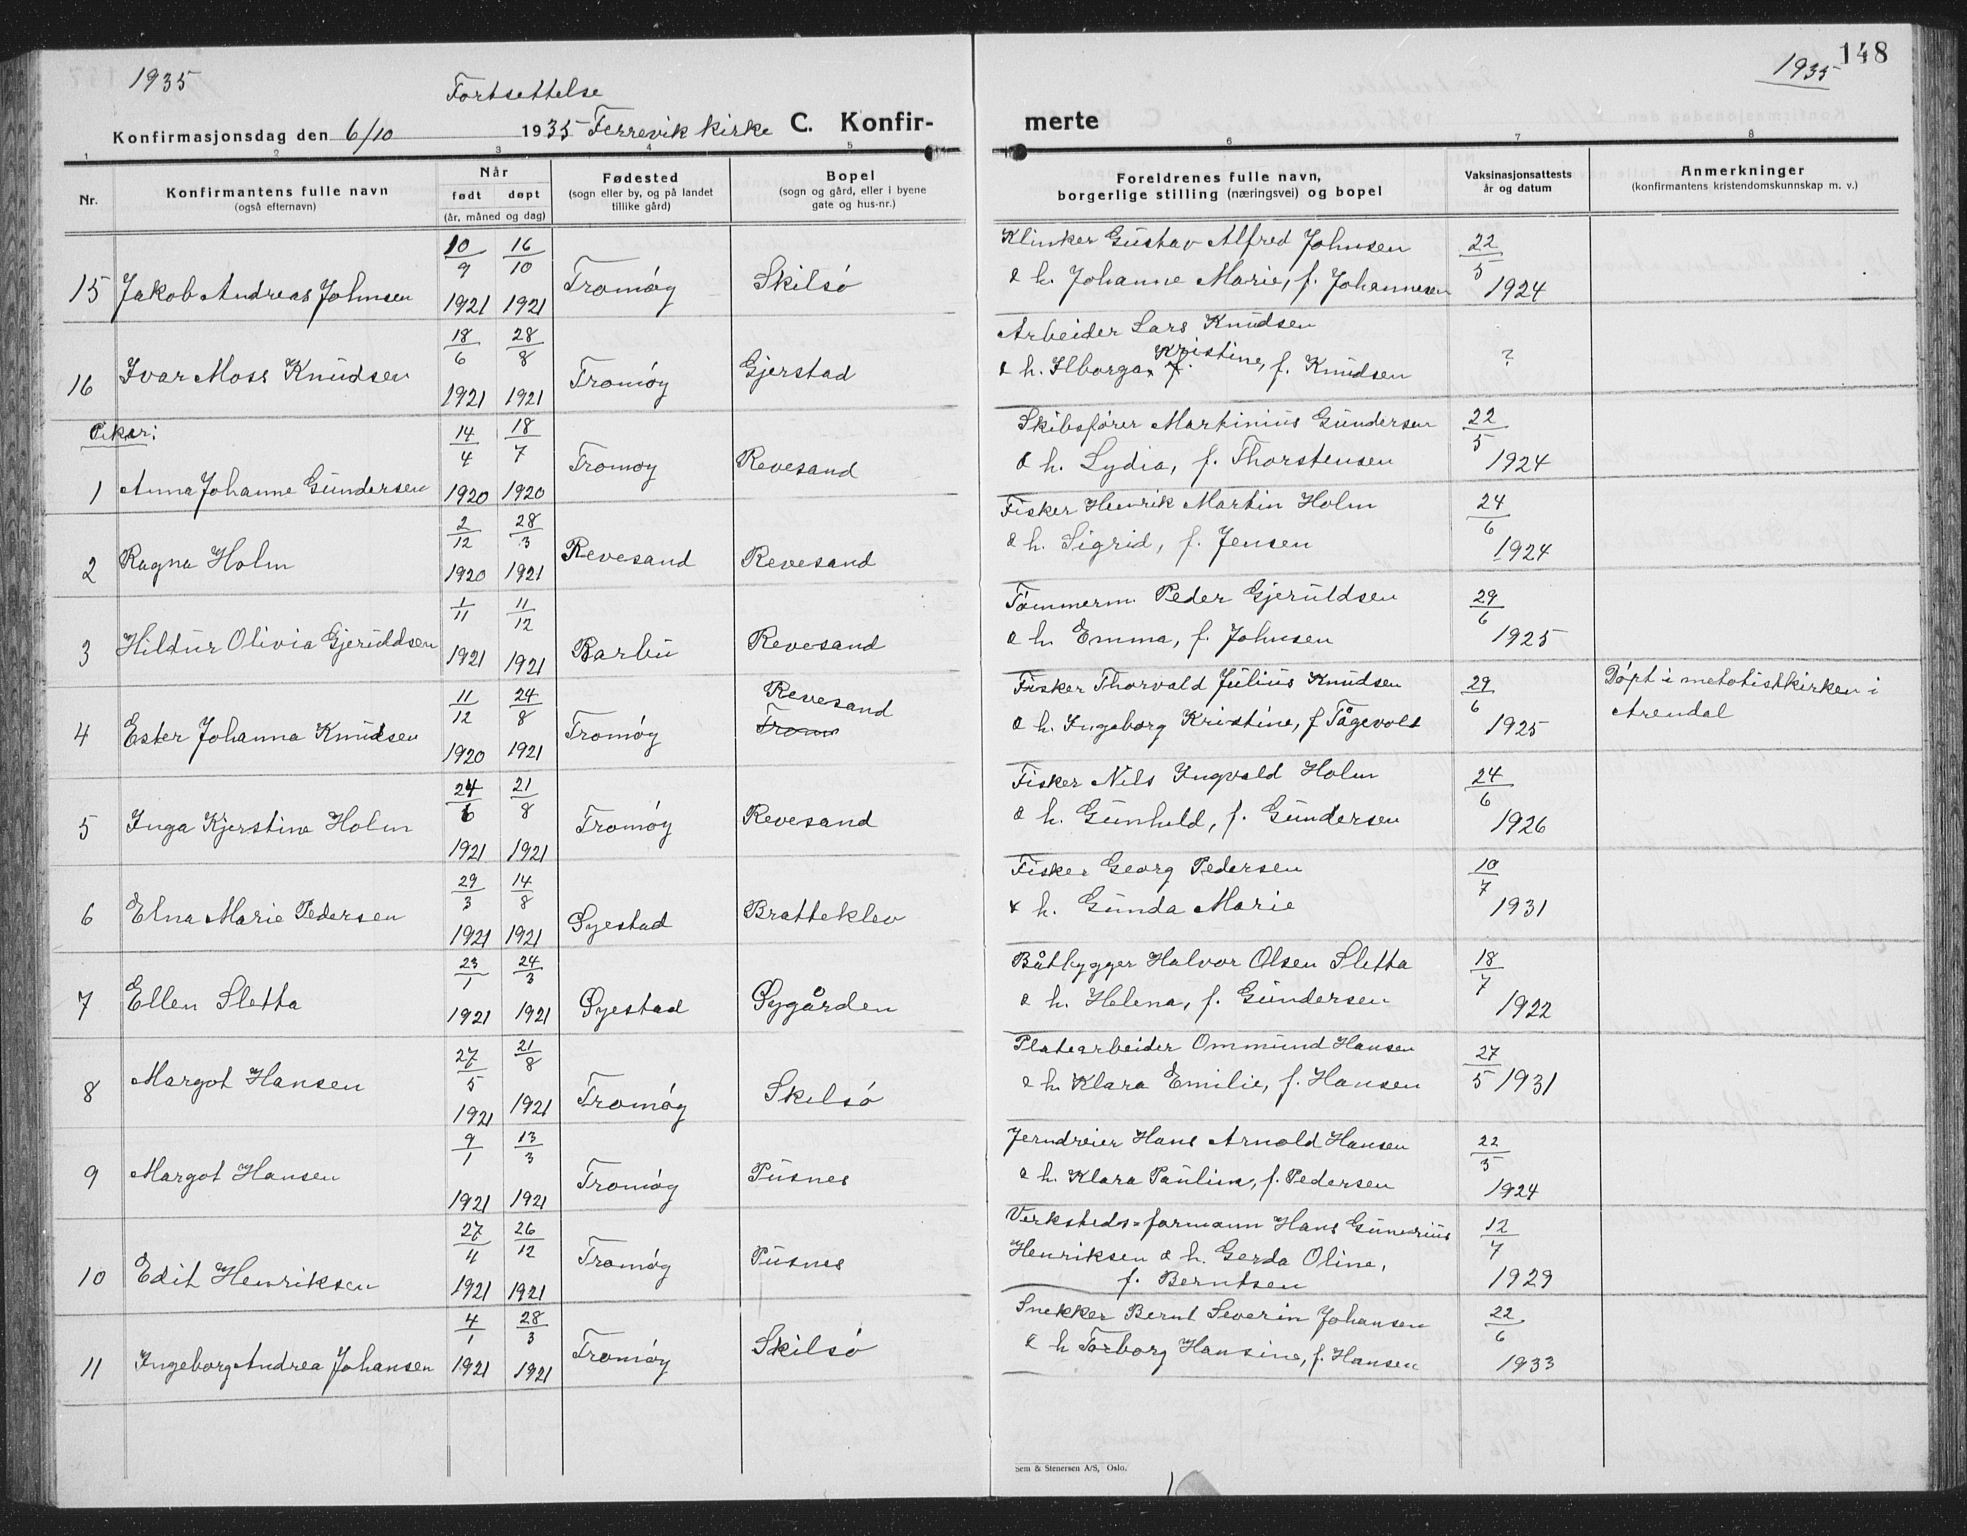 1935
Fortsettelse
Konfirmasjonsdag den 6/10 1935 Færvik kirke C. Konfir-
merte
1935
148
1 2 3 4 5 6 7 8
Nr.
Konfirmantens fulle navn
(også efternavn)
Når
født døpt
(år, måned og dag)
Fødested
(sogn eller by, og på landet
tillike gård)
Bopel
(sogn og gård, eller i byene
gate og hus-nr.)
Foreldrenes fulle navn,
borgerlige stilling (næringsvei) og bopel
Vaksinasjonsattests
år og datum
Anmerkninger
(konfirmantens kristendomskunnskap m. v.)
15 Jakob Andreas Johnsen 10/9 1921 16/10 1921 Tromøy Skilsö
Klinker Gustav Alfred Johnsen
& h. Johanne Marie, f. Johannesen
22/5 1924
16 Ivar Moss Knudsen 18/6 1921 28/8 1921 Tromøy Gjerstad
Arbeider Lars Knudsen
& h. Ilborga Kristine, f. Knudsen
?
Piker:
1 Anna Johanne Gundersen 14/4 1920 18/7 1920 Tromøy Revesand
Skibsfører Martinius Gundersen
& h. Lydia, f. Thorstensen
22/5 1924
2 Ragna Holm 2/12 1920 28/3 1921 Revesand Revesand
Fisker Henrik Martin Holm
& h. Sigrid, f. Jensen
24/6 1924
3 Hildur Olivia Gjeruldsen 1/11 1921 11/12 1921 Barbu Revesand
Tømmerm. Peder Gjeruldsen
& h. Emma, f. Johnsen
29/6 1925
4 Ester Johanna Knudsen 11/12 1920 24/8 1921 Tromøy Revesand
Trom
Fisker Thorvald Julius Knudsen
& h. Ingeborg Kristine, f. Tågevolt
29/6 1925
Döpt i metotistkirken i
Arendal
5 Inga Kjerstine Holm 24/6 1921 21/8 1921 Tromøy Revesand
Fisker Nils Ingvald Holm
& h. Gunhild, f. Gundersen
24/6 1926
6 Elna Marie Pedersen 29/3 1921 14/8 1921 Øyestad Bratteklev
Fisker Georg Pedersen
& h. Gunda Marie
10/7 1931
7 Ellen Sletta 23/1 1921 24/3 1921 Øyestad Øygården
Båtbygger Halvor Olsen Sletta
& h. Helena, f. Gundersen
18/7 1922
8 Margot Hansen 27/5 1921 21/8 1921 Tromøy Skilsö
Platearbeider Ommund Hansen
& h. Klara Emilie, f. Hansen
27/5 1931
9 Margot Hansen 9/1 1921 13/3 1921 Tromøy Pusnes
Jerndreier Hans Arnold Hansen
& h. Klara Pauline, f. Pedersen
22/5 1924
10 Edit Henriksen 27/4 1921 26/12 1921 Tromøy Pusnes
Verksteds=formann Hans Gunerius
Henriksen & h. Gerda Oline,
f. Berntsen
12/7 1929
11 Ingeborg Andrea Johansen 4/1 1921 28/3 1921 Tromøy Skilsö
Snekker Bernt Severin Johansen
& h Torborg Hansine, f. Hansen
22/6 1933
Sem & Stenersen A/S, Oslo.